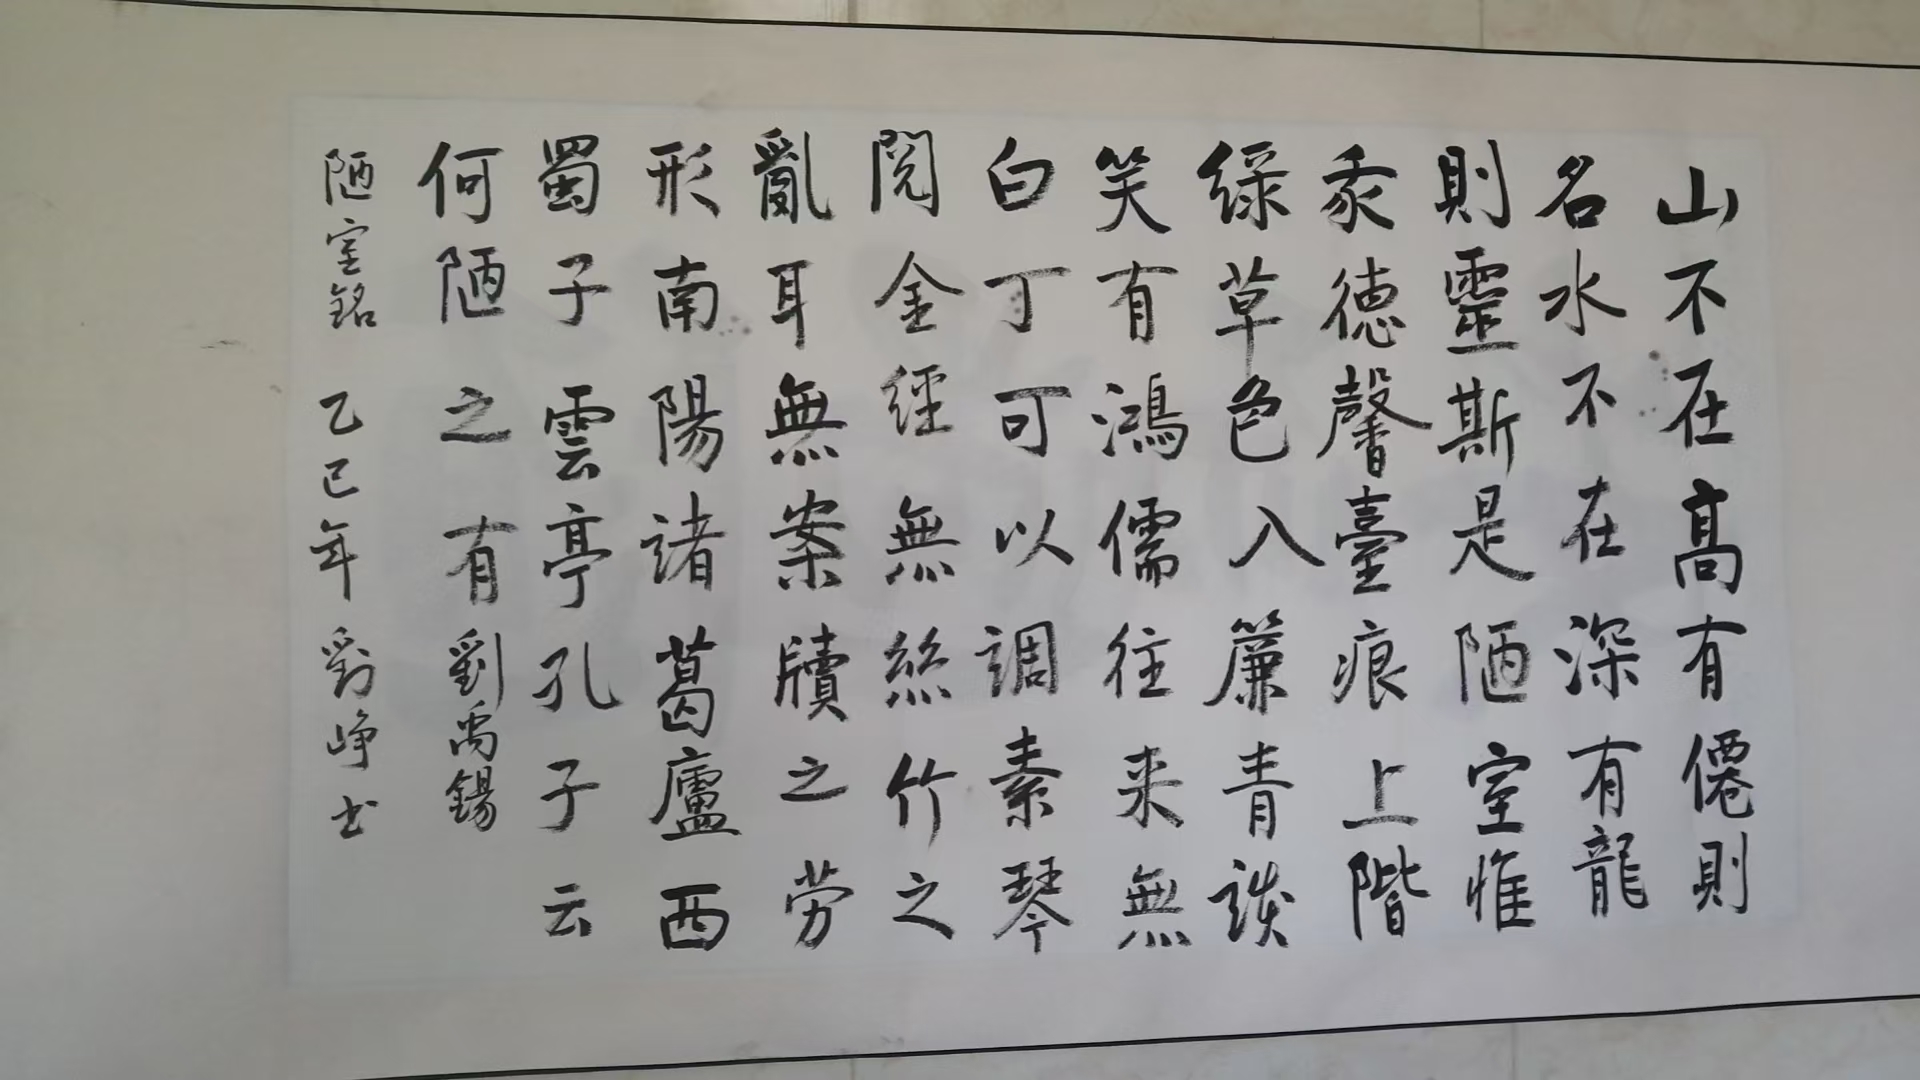 山不在高有僊則
名水不在深有龍
則靈斯是陋室惟
吾德馨臺痕上階
綠草色入簾青談
笑有鴻儒往来無
白丁可以調素琴
閱金經無絲竹之
亂耳無案牘之劳
形南陽諸葛廬西
蜀子雲亭孔子云
何陋之有劉禹錫
陋室銘 乙巳年 劉峥书